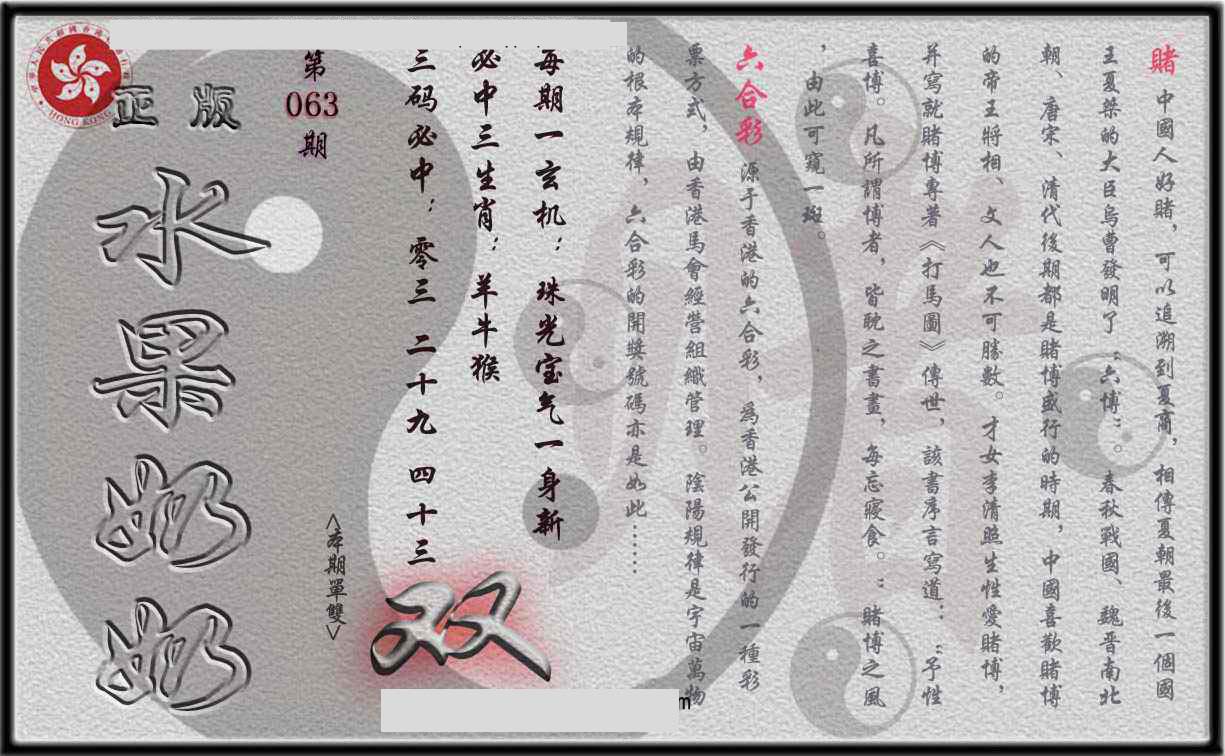 賭 中國人好賭，可以追溯到夏商，相傳夏朝最後一個國
王夏桀的大臣烏曹發明了“六博”。春秋戰國、魏晉南北
朝、唐宋、清代後期都是賭博盛行的時期，中國喜歡賭博
的帝王將相、文人也不可勝數。才女李清照生性愛賭博，
并寫就賭博專著《打馬圖》傳世，該書序言寫道：“予性
喜博。凡所謂博者，皆耽之書晝，每忘寢食。”賭博之風
，由此可窺一斑。
六合彩 源于香港的六合彩，為香港公開發行的一種彩
票方式，由香港馬會經營組織管理。陰陽規律是宇宙萬物
的根本規律，六合彩的開獎號碼亦是如此……
每期一玄机：珠光宝气一身新
必中三生肖：羊牛猴
三码必中：零三 二十九 四十三
双
<本期單雙>
第
063
期
正版
水果奶奶
HONG KONG
m